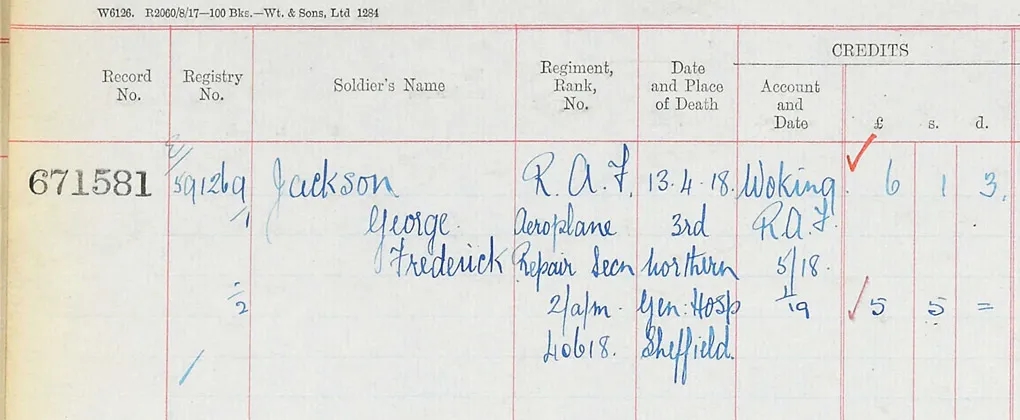 W6126. R2060/8/17—100 Bks.—Wt. & Sons, Ltd 1284
CREDITS
Record No.
Registry No.
Soldier's Name
Regiment, Rank, No.
Date and Place of Death
Account and Date
£ s. d.
671581 E/ 591269 Jackson R.A.F. 13.4.18. Woking. 6 1 3.
/1 George. Aeroplane 3rd R.A.F.
Frederick Repair Secn Northern 5/18.
/2 2/a/m. Gen: Hosp 1/19 5 5 =
40618. Sheffield.